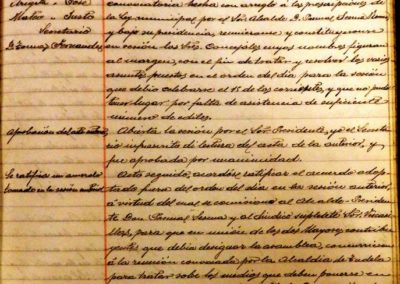 convocatoria hecha con arreglo á las prescripciones de
la Ley municipal por el Sr. Alcalde D. Tomás
y bajo su presidencia, reunieronse y constituyeronse
en sesión los Sres. Concejales cuyos nombres figuran
al margen, con el fin de tratar y resolver los varios
asuntos puestos en el orden del día para la sesión
que debió celebrarse el 15 de los corrientes, y que no pudo
tener lugar por falta de asistencia de suficiente
número de ediles.
Abierta la sesión por el Sor. Presidente, yo el Secretario
di lectura del acta de la anterior, y
fue aprobada por unanimidad.
Acto seguido, acordós ratificar el acuerdo adop-
tado fuera del orden del día en la sesión anterior,
á virtud del cual se comisionó al Alcalde-Preside
Don Tomás y al Síndico suplente Sr.
para que en unión de los dos Mayores contribu-
yentes que debía designar la asamblea, concurriesen
á la reunión convocada por la Alcaldía de Tudela
para tratar sobre los medios que deben ponerse en
José
Mateo " Justo
Secretario
D. Tomas Fernandez
Aprobación del acta anterior
Se ratifica un acuerdo
tomado en la sesión anterior